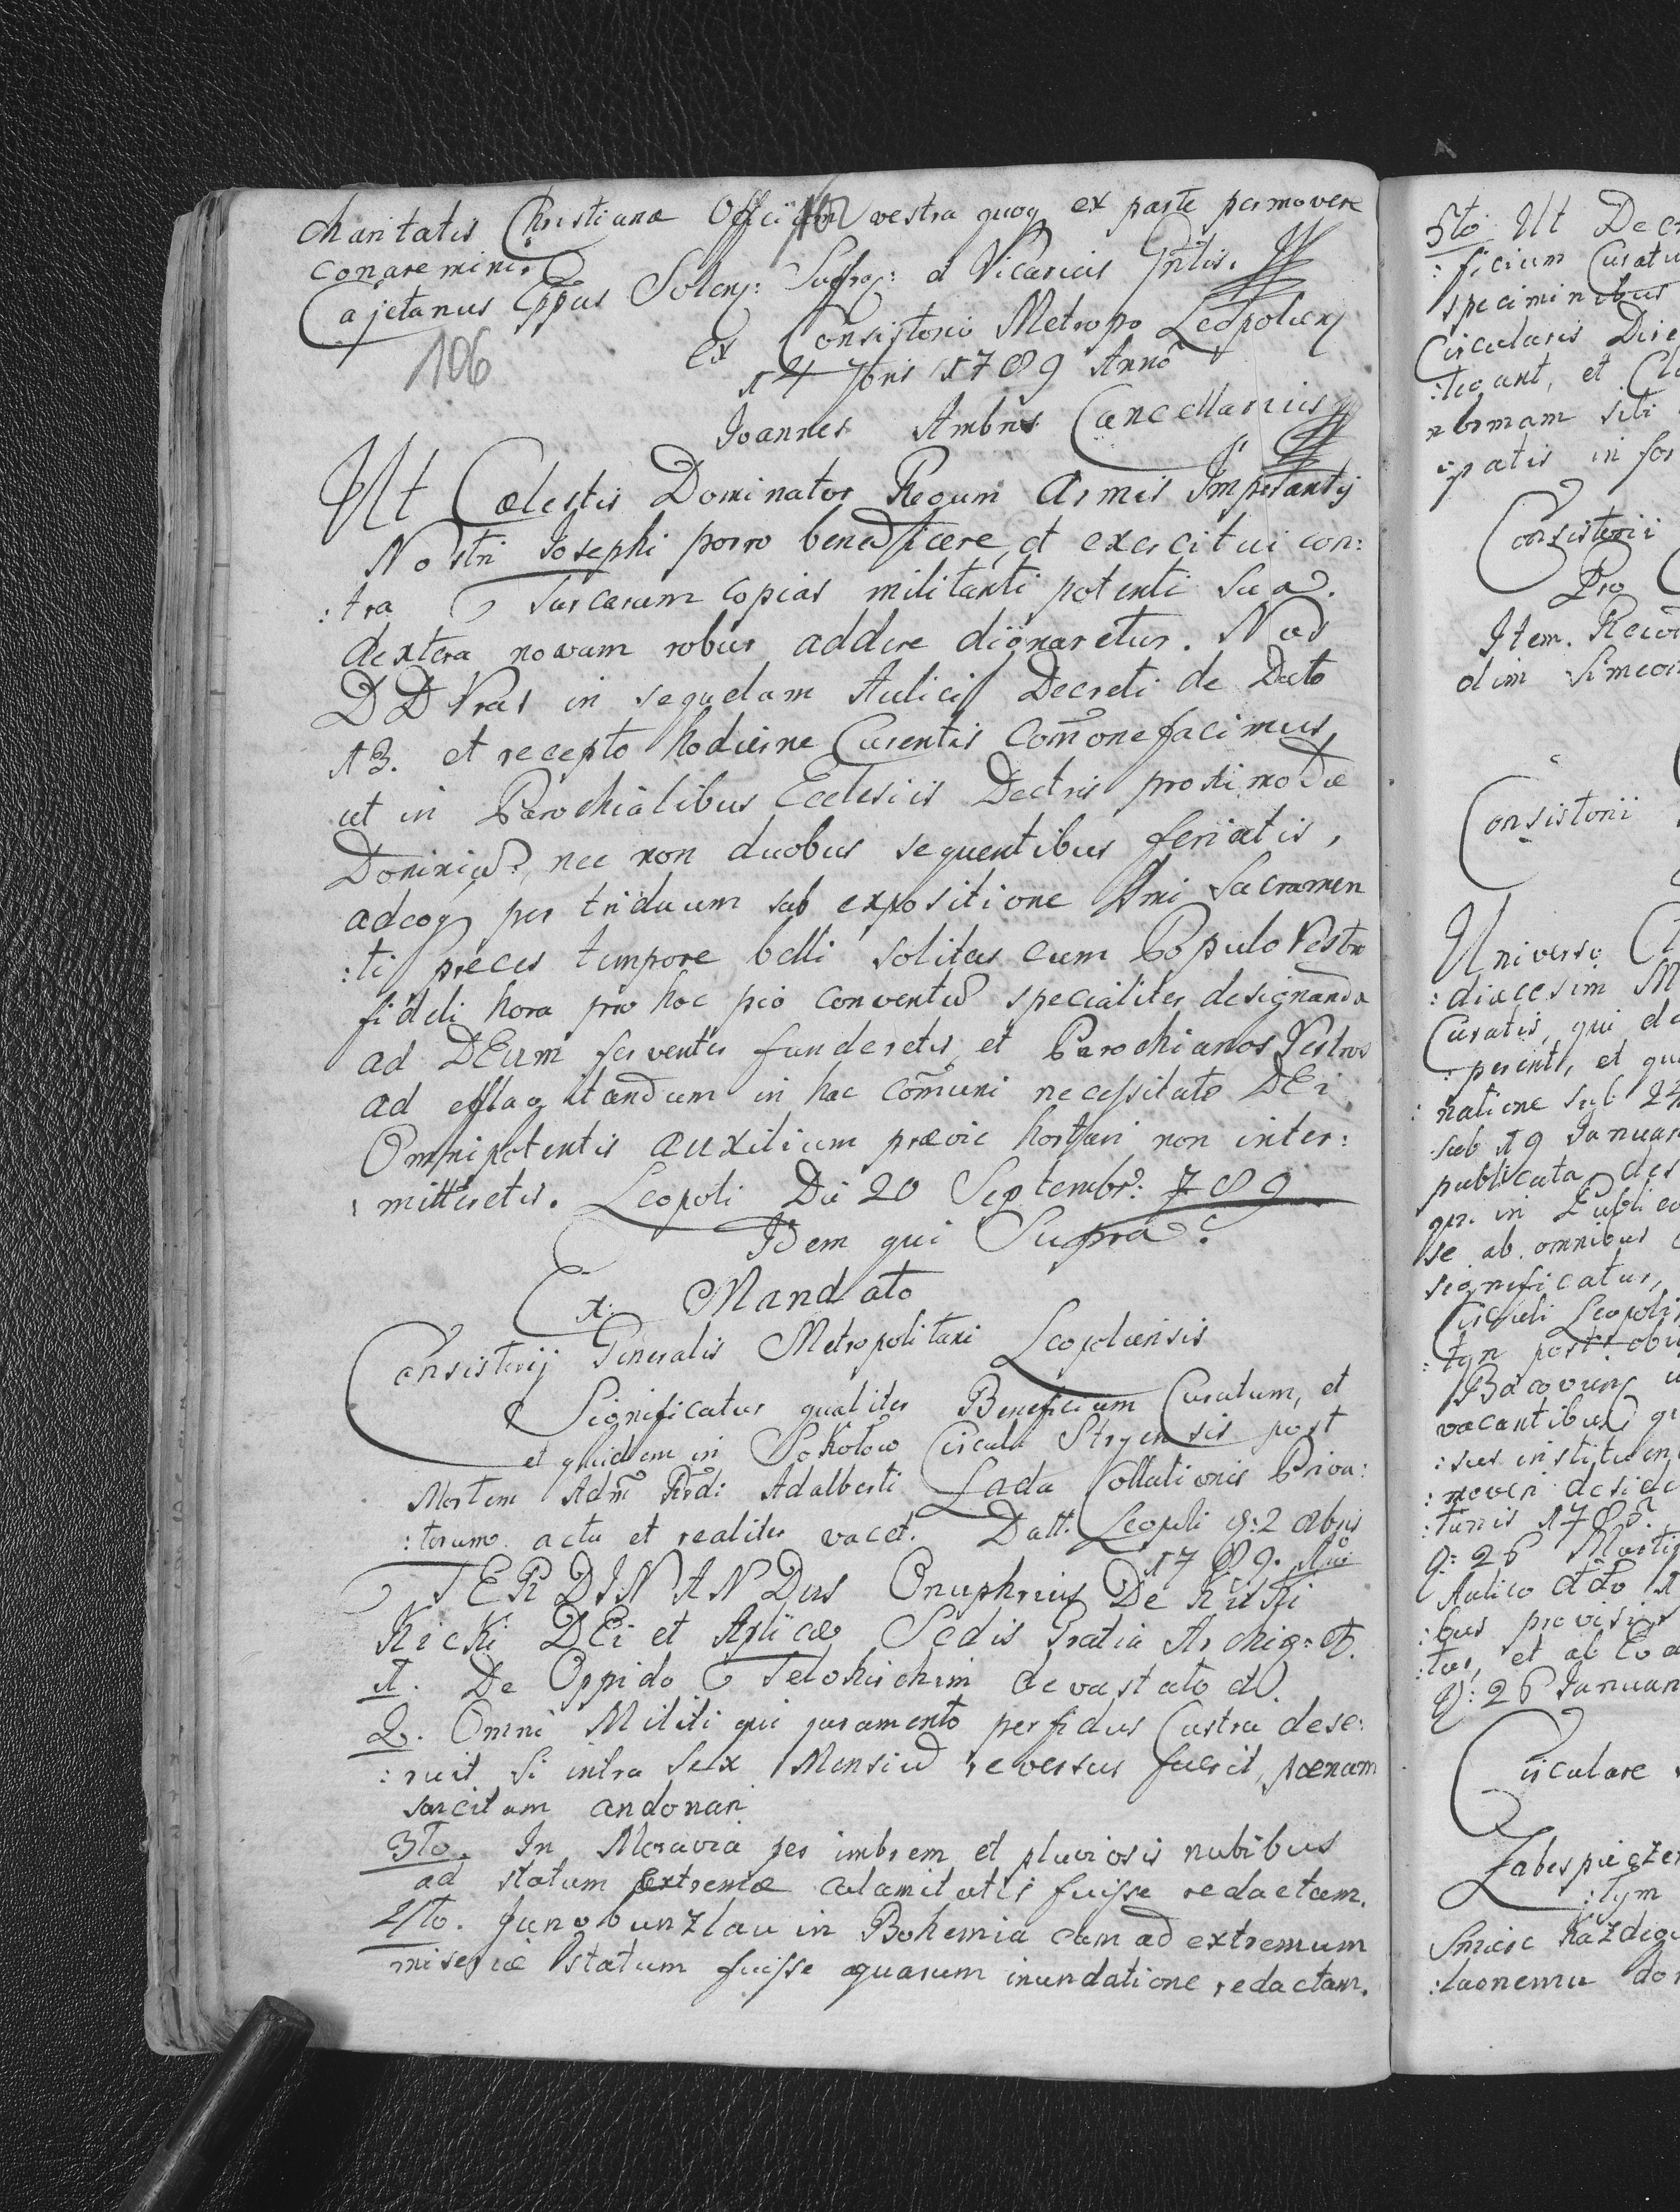 charitatis Christianæ Officiũm vestra quoq ex parte permovere
conaremini.
Cajetanus Eppus Soleng: Suffrag: et Vicarius Gntlis.
106
ex Consistorio Metropo Leopolieng
14 7bris 1789 Anno
Joannes Ambros Cancellarius
Ut Cælestis Dominator Regum armis Imperantis
Nostri Josephi porro benedicere, et exercitui con:
:tra Turcarum copias militanti potenti sua.
dextera novum robur addere dignaretur. Nos
DD Vras in sequelam Aulici Decreti de Dato
13. et recepto hodierne Curentis Com̃onefacimus,
ut in Parochialibus Ecclesiis Dectris proximo die
Dominica, nec non duobus sequentibus feriatis,
adeoq per triduum sub expositione Smi Sacramen
:ti preces tempore belli solitas cum Populo Vestro
fideli hora pro hoc pio conventu specialiter designanda
ad DEum ferventer funderetis, et Parochianos Vestros
ad efflagitandum in hac com̃uni necessitate DEi
Omnipotentis auxilium prævie hortari non inter:
: mitteretis. Leopoli Die 20 Septembr: 789
Idem qui Supra
Ex Mandato
Consistorij Generalis Metropolitani Leopoliensis
Significatur qualiter Beneficium Curatum, et
et quidem in Sokołow Circulo Stryensis post
Mortem Adm̃ Rndi Adalberti Lada Collationis Priva:
:torum. actu et realiter vacet. Datt. Leopoli 9: 2 8bris
1789. Ao
FERDINANDus Onuphrius De Kitki
Kicki DEi et Aplicæ Sedis Gratia Archiep: et.
1. De Oppido devastato et.
2. Omni Militi qui juramento perfidus Castra dese:
:ruit si intra Sex Mensiu reversus fuerit, pænam
sancitam condonari
3tio. In Moravia per imbrem et pluviosis nubibus
ad statum extremæ calamitatis fuisse redactam.
4to. Jungbunzlau in Bohemia eum ad extremum
miseriæ statum fuisse aquarum inundatione redactam.
5to Ut Decr
:ficium Curatu
speciminibus
Circularis Dire
:tegant, et Cl
normam sibi
:patis in for
Consistorii
Pro
Item.
olim Simeon
Consistorii
Universo Cl
:diæcesim M
Curatis, qui de
:perent, et qu
:natione sub 24
sub 19 Januar
publicata des
qr. in Publico
se ab omnibus
significatur,
Circuli Leopoli
:tyn post obi
vacantibus
:sus instituen
:moveri deside
:turis 178
9: 26 Martij
Aulico dto
:bus provisi
:tur, et ab Eo
9: 26 Januar
Circulare
Zabespiecze
:tym
Smierc Każdego
:laonemu do